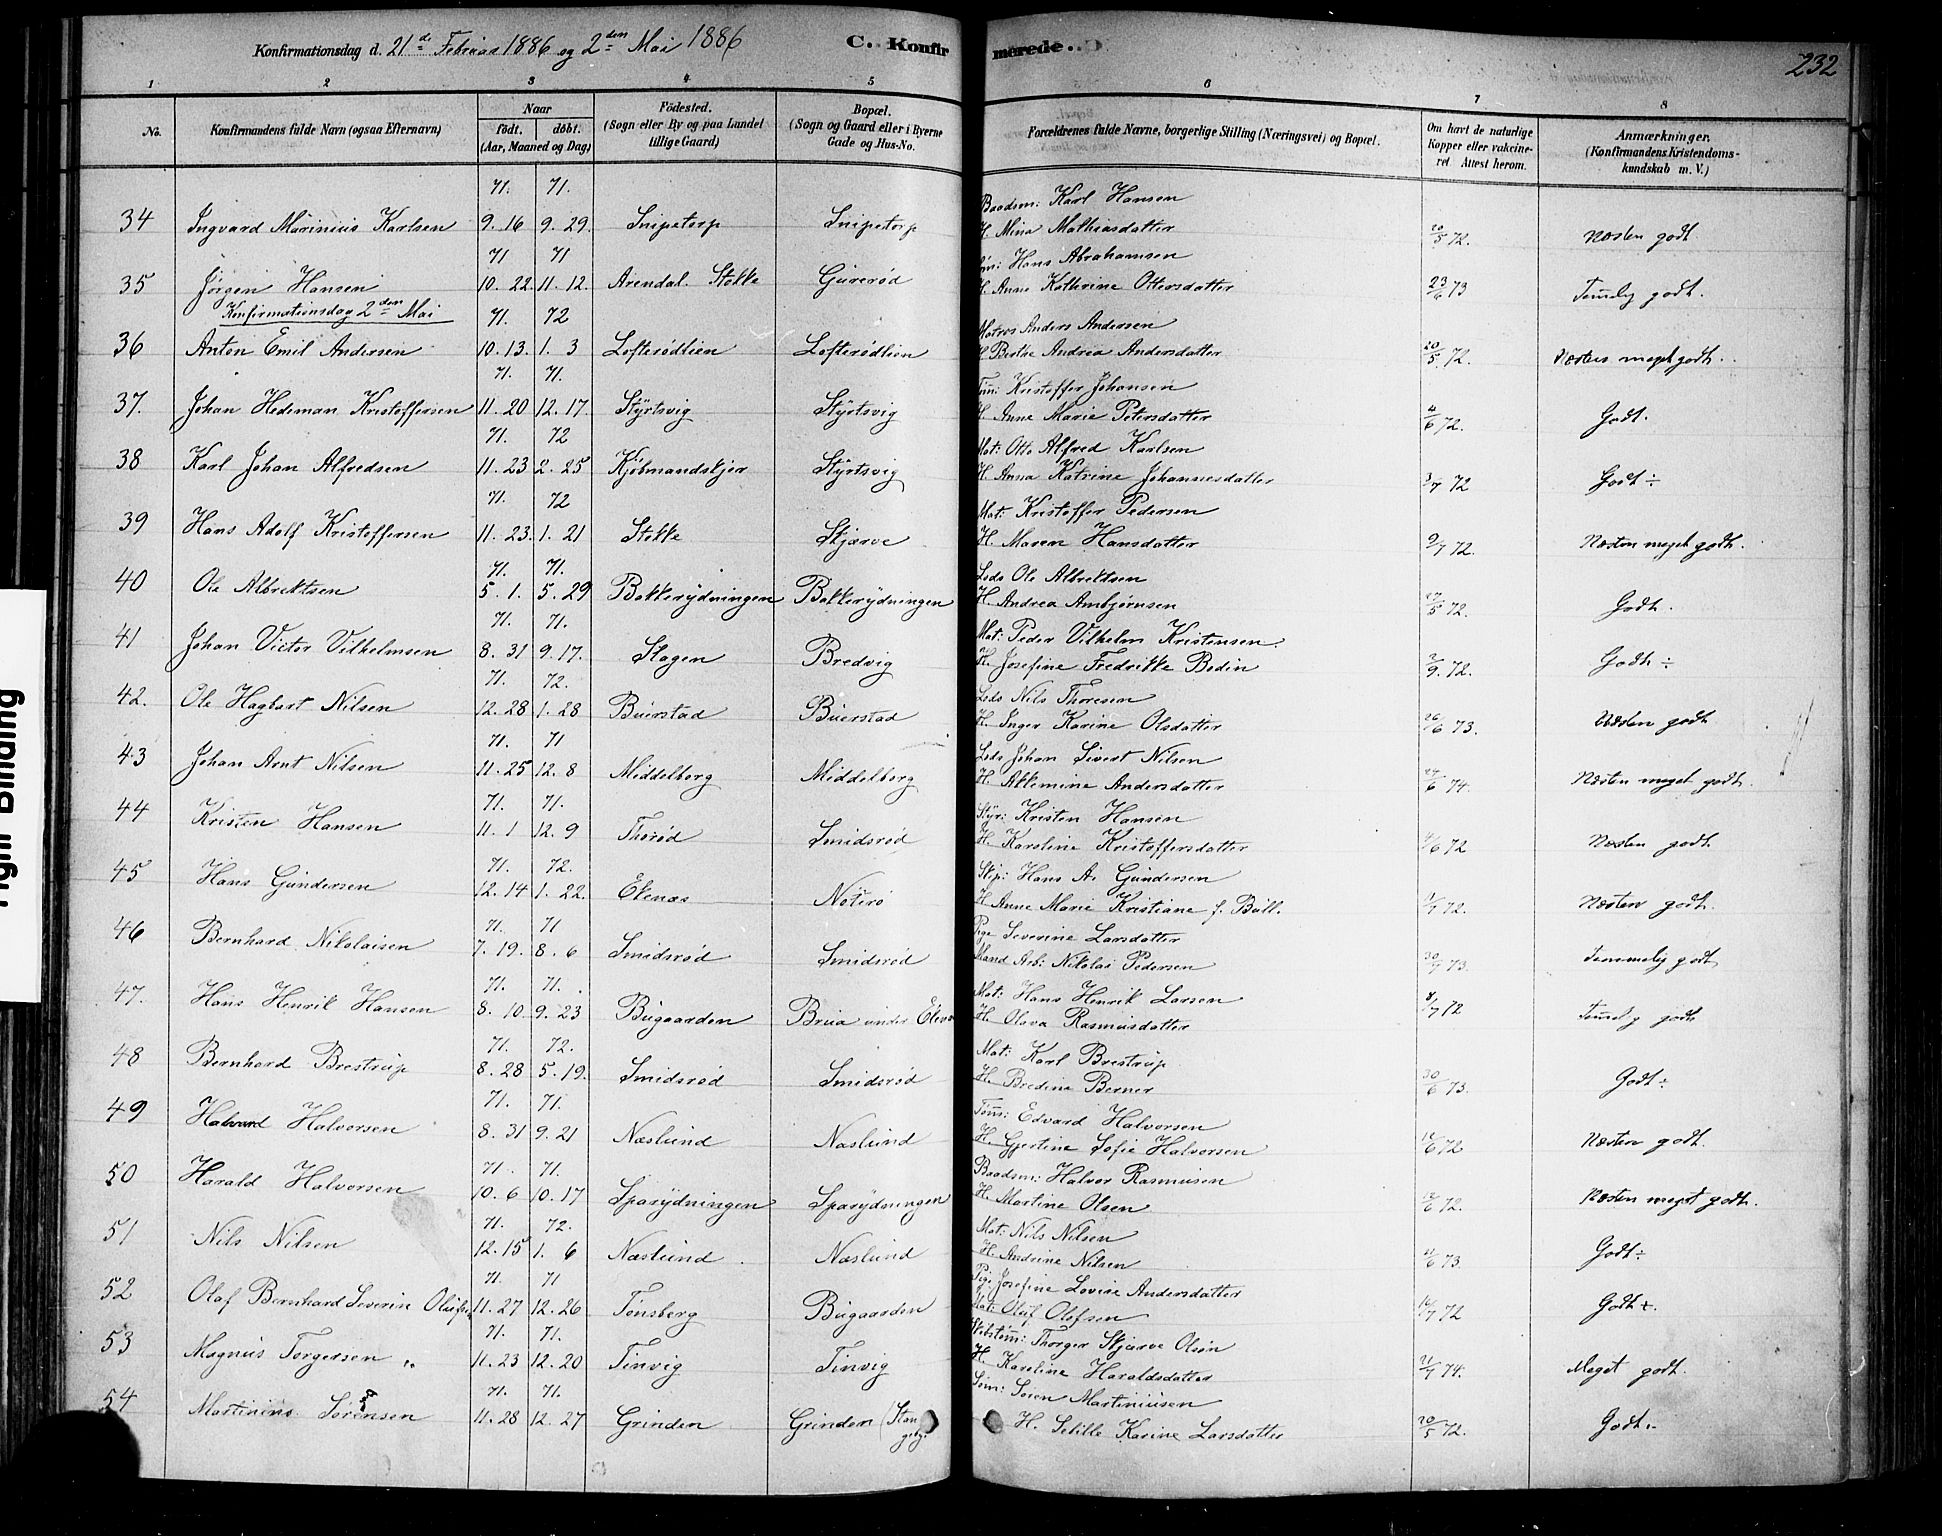 Konfirmationsdag d. 21de Februar 1886 og 2den Mai 1886 C. Konfirmerede. 232
1 2 3 4 5 6 7 8
No. Konfirmandens fulde Navn (ogsaa Efternavn) Naar født. døbt. (Aar, Maaned og Dag) Fødested. (Sogn eller By og paa Landet tillige Gaard) Bopæl. (Sogn og Gaard eller i Byerne Gade og Hus-No. Forældrenes fulde Navne, borgerlige Stilling (Næringsvei) og Bopæl. Om havt de naturlige Kopper eller vakcineret. Attest herom. Anmærkninger. (Konfirmandens Kristendomskundskab m. V.)
71. 71. Baadsm: Karl Hansen
34 Ingvard Marinius Karlsen 9. 16 9. 29. Snipetorp Snipetorp H. Mina Mathiasdatter 20/5 72. Næsten godt
71 71 Hans Abrahamsen
35 Jørgen Hansen 10. 22. 11. 12. Arendal. Stokke Gurerød H. Anne Kathrine Ottersdatter 23/6 73 Temmelig godt.
Konfirmationsdag 2den Mai 71. 72 Matros Anders Andersen
36 Anton Emil Andersen 10. 13. 1. 3 Lofterødlien Lofterødlien H. Berthe Andrea Andersdatter 20/5 72. Næsten meget godt.
71. 71. Tøm: Kristoffer Johansen
37. Johan Hedeman Kristoffersen 11. 20 12. 17. Styrtsvig Styrtsvig H. Anne Marie Petersdatter 4/6 72. Godt.
71. 72 Mat: Otto Alfred Karlsen
38 Karl Johan Alfredsen 11. 23 2. 25 Kjøbmandskjær Styrtsvig H. Anna Katrine Johannesdatter 3/7 72 Godt ÷
71. 72 Mat: Kristoffer Pedersen
39 Hans Adolf Kristoffersen 11. 23. 1. 21 Stokke Skjærve H. Maren Hansdatter 2/7 72. Næsten meget godt.
71. 71. Lods Ole Albrektsen
40 Ole Albrektsen 5. 1. 5. 29 Bakkerydningen Bakkerydningen H. Andrea Ambjørnsen 17/5 72. Godt.
71. 71. Mat: Peder Vilhelm Kristensen.
41 Johan Victor Vilhelmsen 8. 31 9. 17. Stagen Bredvig H. Josefine Fredrikke Bodin 2/9. 72. Godt ÷
71. 72. Lods Nils Thoresen
42. Ole Hagbart Nilsen 12. 28 1. 28 Buerstad Buerstad H. Inger Karine Olsdatter 26/6 73. Næsten godt
71. 71 Lods Johan Sivert Nilsen
43 Johan Arnt Nilsen 11. 25 12. 8 Middelborg Middelborg H. Aklemine Andersdatter 24/6 74. Næsten meget godt.
71. 71. Styr: Kristen Hansen
44 Kristen Hansen 11. 1 12. 9 Thorød Smidsrød H. Karoline Kristoffersdatter 4/6 72 Næsten godt
71. 72. Skip: Hans A. Gundersen
45 Hans Gundersen 12. 14 1. 22. Ekenæs Nøtterø H. Anne Marie Kristiane f. Bull. 1/7 72. Næsten godt.
71. 71 Pige Severine Larsdatter
46 Bernhard Nikolaisen 7. 19. 8. 6 Smidsrød Smidsrød Mand Arb: Nikolai Pedersen 30/7 73. Temmelig godt
71. 71. Mat: Hans Henrik Larsen
47. Hans Henrik Hansen 8. 10. 9. 23 Bugaarden Brua under Ekenæs H. Olava Rasmusdatter 8/7 72 Temmelig godt
71. 72. Mat: Karl Brestrup
48 Bernhard Brestrup 8. 28 5. 19. Smidsrød Smidsrød H. Bredine Berner 30/6 73. Godt ÷
71. 71. Tøm: Edvard Halvorsen
49 Halvard Halvorsen 8. 31 9. 21 Næslund Næslund H. Gjertine Sofie Halvorsen 12/6 72 Næsten godt.
71. 71. Baadsm: Halvor Rasmusen
50 Harald Halvorsen 10. 6 10. 17 Sparydningen Sparydningen H. Martine Olsen 12/6 72. Næsten meget godt.
71. 72. Mat: Nils Nilsen
51 Nils Nilsen 12. 15 1. 6 Næslund Næslund H. Andrine Nilsen 4/6 73. Godt ÷
71. 71 Pige Josefine Lovise Andersdatter
52 Olaf Bernhard Severin Olafsen 11. 27 12. 26 Tønsberg Bugaarden Mat: Oluf Olofsen 16/7 72 Godt ÷.
71. 71. Skibstøm: Thorger Skjærve Olsøn
53 Magnus Torgersen 11. 23 12. 20 Tinvig Tinvig H. Karoline Haraldsdatter 21/7 74. Meget godt.
71. 71. Søm: Søren Martiniusen
54 Martinius Sørensen 11. 28 12. 27 Grinden Grinden (Stangeby. H. Sebille Karine Larsdatter 20/5 72. Godt ÷